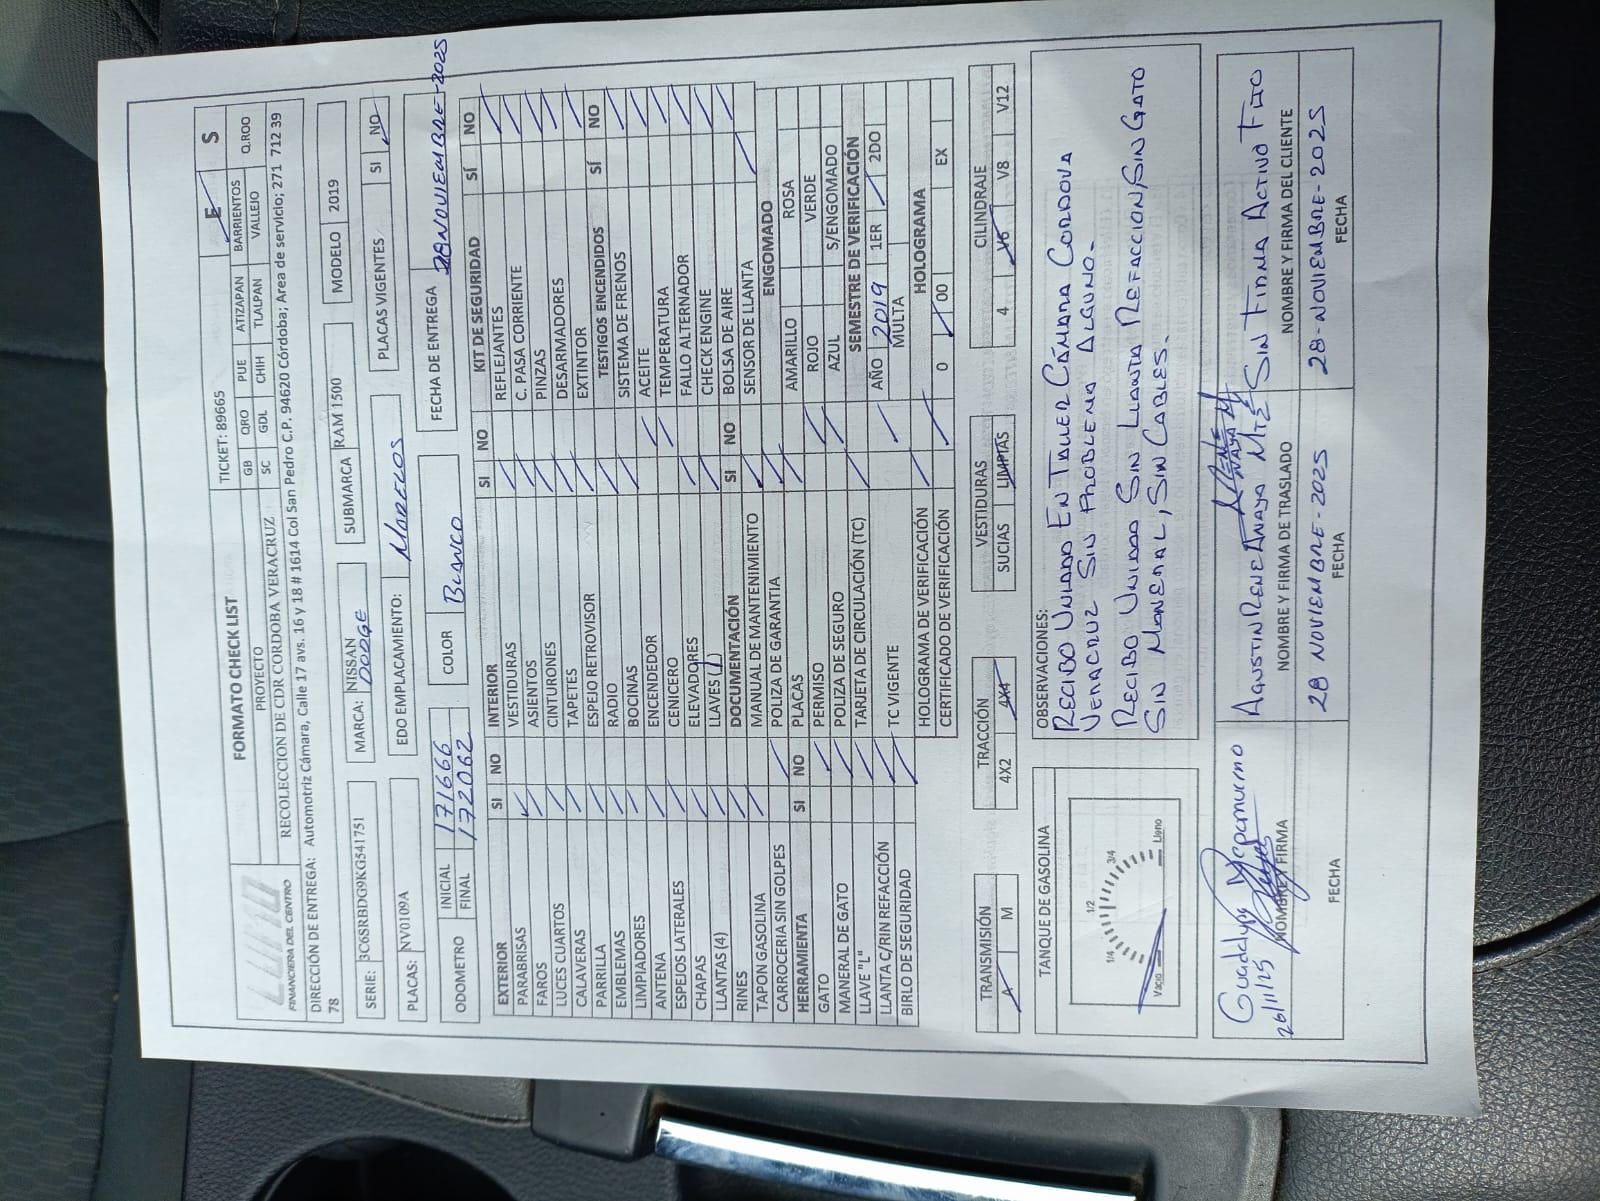 LUMO
FINANCIERA DEL CENTRO
FORMATO CHECK LIST
TICKET: 89665
E S
PROYECTO
RECOLECCION DE CIDR CORDOBA VERACRUZ
GB QRO PUE ATIZAPAN BARRIENTOS Q.ROO
SC GDL CHIH TLALPAN VALLEJO
DIRECCIÓN DE ENTREGA: Automotriz Cámara, Calle 17 avs. 16 y 18 # 1614 Col San Pedro C.P. 94620 Córdoba; Area de servicio; 271 712 39
78
SERIE: 3C6SRBDG9KG541751 MARCA: NISSAN DODGE SUBMARCA RAM 1500 MODELO 2019
PLACAS: NV0109A EDO EMPLACAMIENTO: MORELOS PLACAS VIGENTES SI NO
ODOMETRO INICIAL 171666 COLOR BLANCO FECHA DE ENTREGA 28 NOVIEMBRE-2025
FINAL 172062
EXTERIOR SI NO
PARABRISAS
FAROS
LUCES CUARTOS
CALAVERAS
PARRILLA
EMBLEMAS
LIMPIADORES
ANTENA
ESPEJOS LATERALES
CHAPAS
LLANTAS (4)
RINES
TAPON GASOLINA
CARROCERIA SIN GOLPES
HERRAMIENTA SI NO
GATO
MANERAL DE GATO
LLAVE "L"
LLANTA C/RIN REFACCIÓN
BIRLO DE SEGURIDAD
INTERIOR SI NO
VESTIDURAS
ASIENTOS
CINTURONES
TAPETES
ESPEJO RETROVISOR
RADIO
BOCINAS
ENCENDEDOR
CENICERO
ELEVADORES
LLAVES (1)
DOCUMENTACIÓN SI NO
MANUAL DE MANTENIMIENTO
POLIZA DE GARANTIA
PLACAS
PERMISO
POLIZA DE SEGURO
TARJETA DE CIRCULACIÓN (TC)
TC VIGENTE
HOLOGRAMA DE VERIFICACIÓN
CERTIFICADO DE VERIFICACIÓN
KIT DE SEGURIDAD SÍ NO
REFLEJANTES
C. PASA CORRIENTE
PINZAS
DESARMADORES
EXTINTOR
TESTIGOS ENCENDIDOS SÍ NO
SISTEMA DE FRENOS
ACEITE
TEMPERATURA
FALLO ALTERNADOR
CHECK ENGINE
BOLSA DE AIRE
SENSOR DE LLANTA
ENGOMADO
AMARILLO ROSA
ROJO VERDE
AZUL S/ENGOMADO
SEMESTRE DE VERIFICACIÓN
AÑO 2019 1ER 2DO
MULTA
HOLOGRAMA
0 00 EX
TRANSMISIÓN TRACCIÓN VESTIDURAS CILINDRAJE
A M 4X2 4X4 SUCIAS LIMPIAS 4 V6 V8 V12
TANQUE DE GASOLINA
Vacio 1/4 1/2 3/4 Lleno
OBSERVACIONES:
RECIBO UNIDAD EN TALLER CÁMARA CORDOVA
VERACRUZ SIN PROBLEMA ALGUNO.
RECIBO UNIDAD SIN LLANTA REFACCION, SIN GATO
SIN MANERAL, SIN CABLES.
Guadalupe
26/11/25
NOMBRE Y FIRMA
FECHA
AGUSTIN RENE ANAYA
NOMBRE Y FIRMA DE TRASLADO
28 NOVIEMBRE-2025
FECHA
SIN FIRMA ACTIVO FIJO
NOMBRE Y FIRMA DEL CLIENTE
28-NOVIEMBRE-2025
FECHA